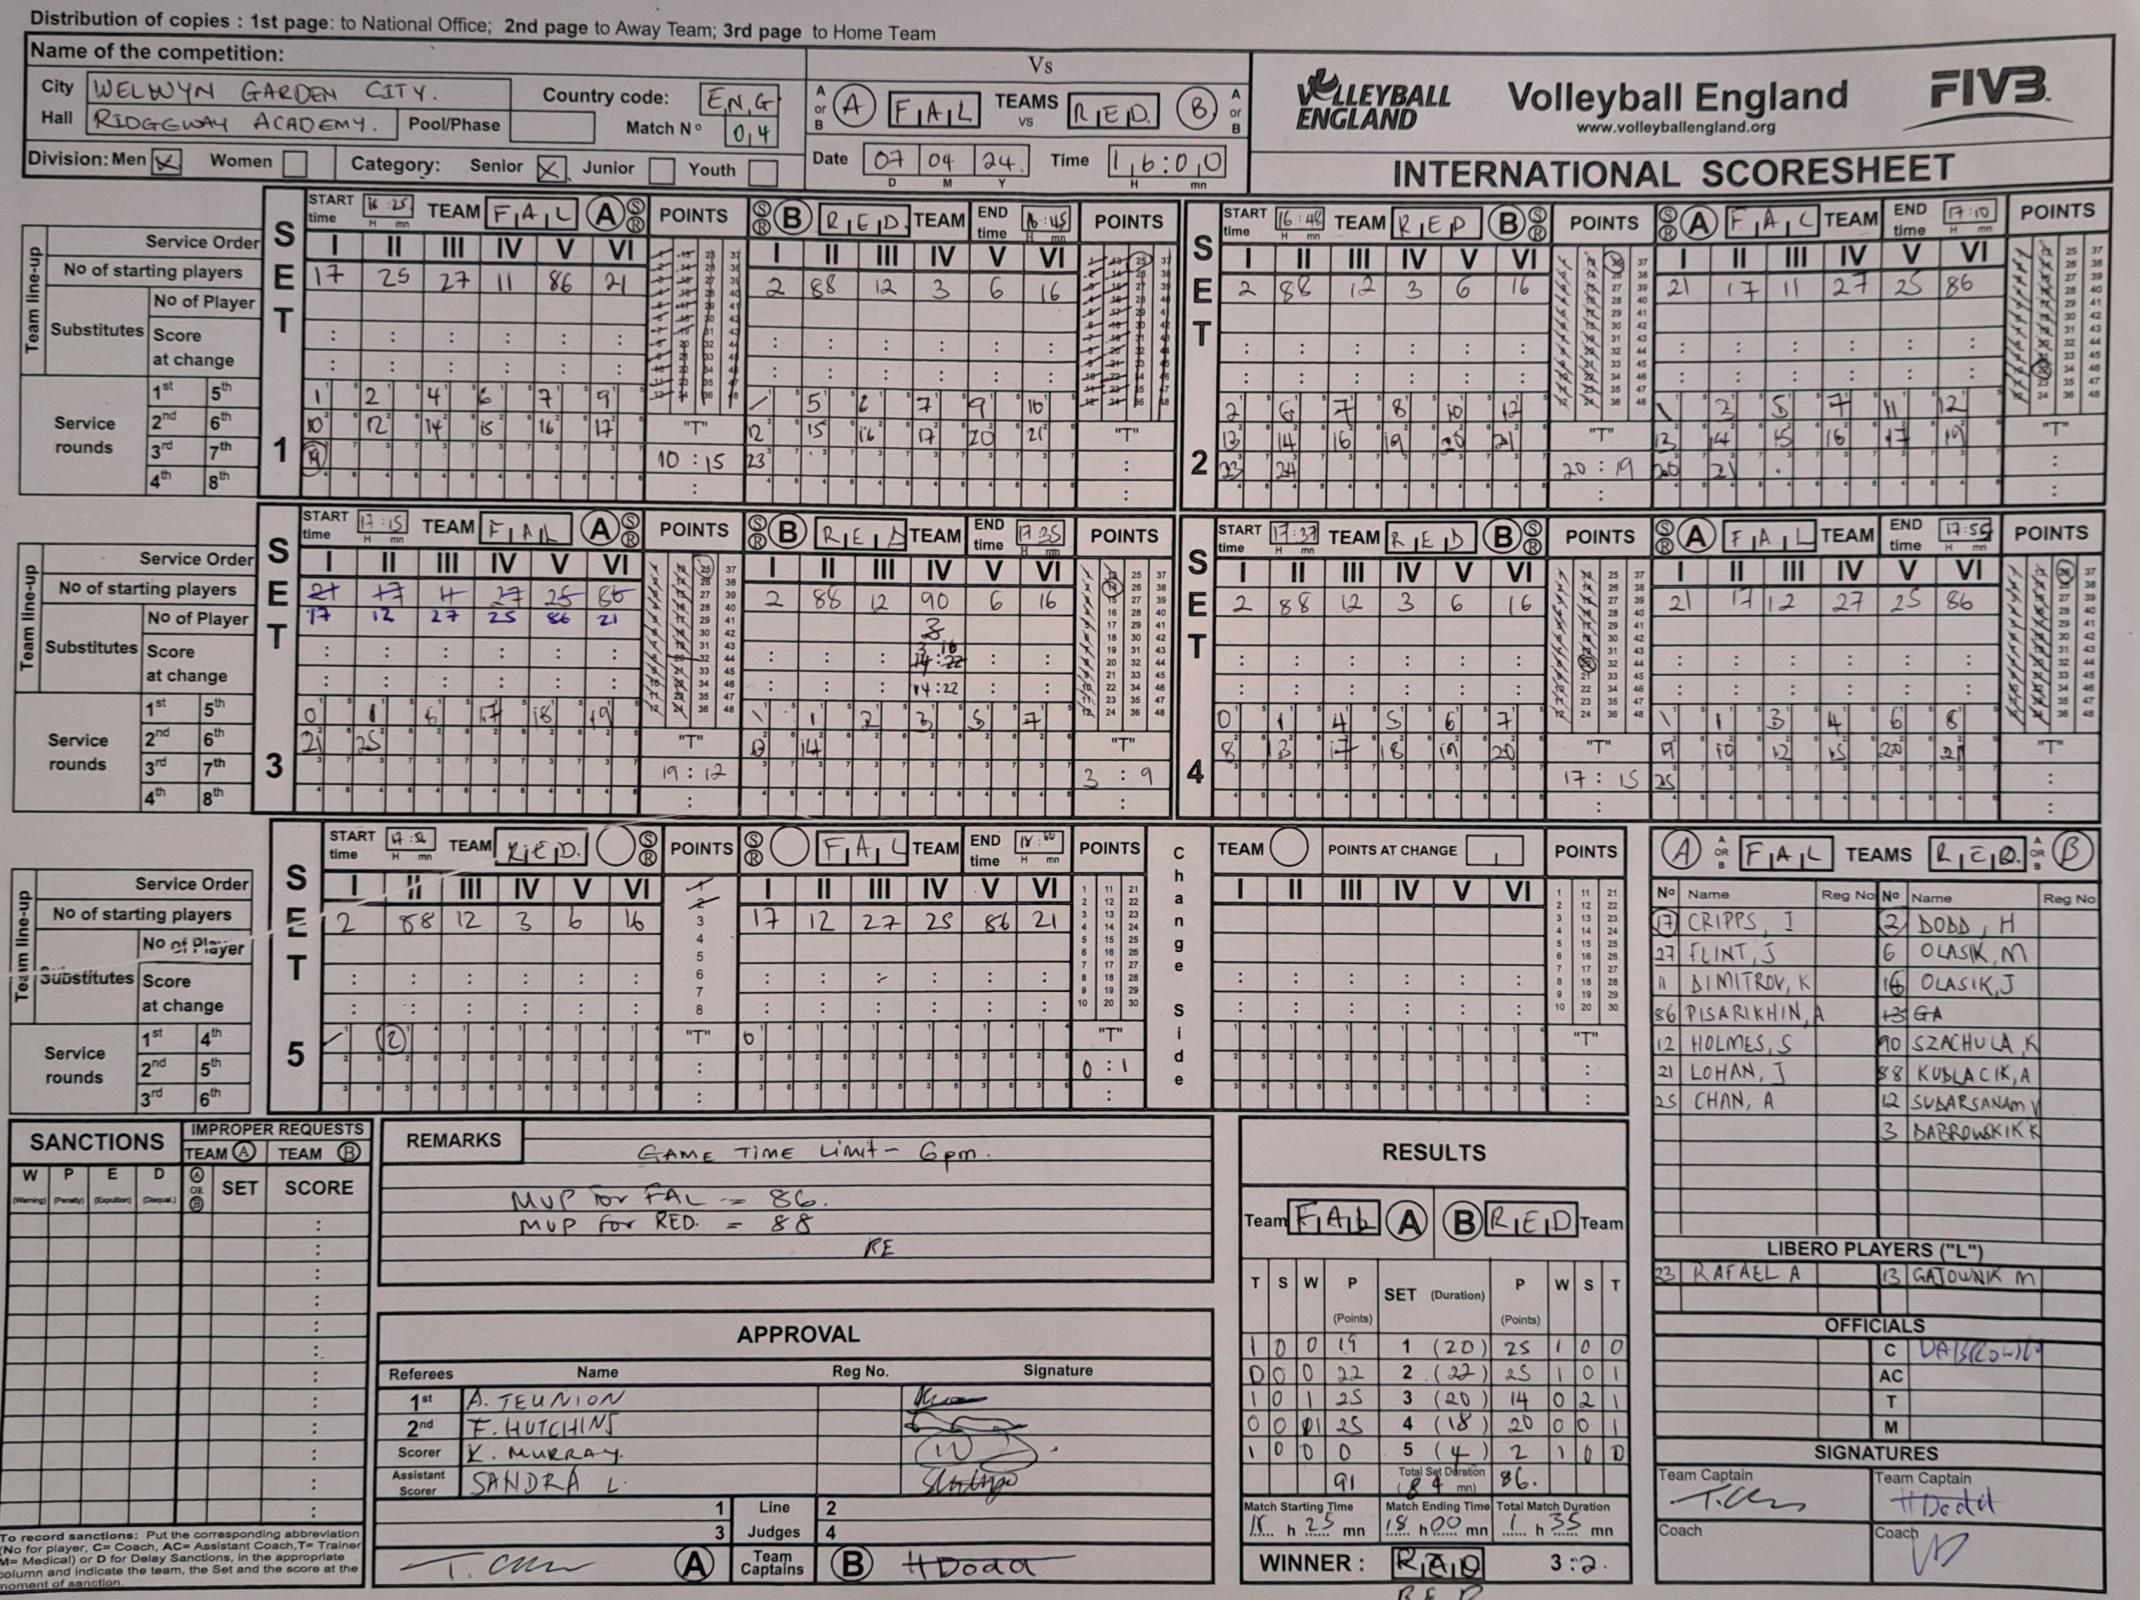 Distribution of copies : 1st page: to National Office; 2nd page to Away Team; 3rd page to Home Team
Name of the competition:
City WELWYN GARDEN CITY. Country code: ENG
Hall RIDGEWAY ACADEMY. Pool/Phase Match Nº 0,4
Division: Men X Women Category: Senior X Junior Youth
Vs
A or B A FAL TEAMS vs RED. B A or B
Date 07 04 24. Time 16:00
D M Y H mn
VOLLEYBALL ENGLAND
Volleyball England
www.volleyballengland.org
FIVB
INTERNATIONAL SCORESHEET
SET 1
START time 16:25 TEAM FAL A S R POINTS S R B RED. TEAM END time 16:45 POINTS
Team line-up
Service Order I II III IV V VI I II III IV V VI
No of starting players 17 25 27 11 86 21 2 88 12 3 6 16
Substitutes No of Player
Score at change
Service rounds
1st 5th 1 2 4 6 7 9 5 6 7 9 10
2nd 6th 10 12 14 15 16 17 12 15 16 17 20 21
3rd 7th 19 23
4th 8th
"T" 10 : 15 "T" :
SET 2
START time 16:48 TEAM RED B S R POINTS S R A FAL TEAM END time 17:10 POINTS
I II III IV V VI I II III IV V VI
2 88 12 3 6 16 21 17 11 27 25 86
2 6 7 8 10 12 3 5 7 11 12
13 14 16 19 20 21 13 14 15 16 17 19
23 24 20 21
"T" 20 : 19 "T" :
SET 3
START time 17:15 TEAM FAL A S R POINTS S R B RED TEAM END time 17:35 POINTS
Team line-up
Service Order I II III IV V VI I II III IV V VI
No of starting players 21 17 11 27 25 86 2 88 12 90 6 16
Substitutes No of Player 17 12 27 25 86 21 3
Score at change
14:22
Service rounds
1st 5th 0 1 6 17 18 19 1 2 3 5 7
2nd 6th 21 25 14
3rd 7th
4th 8th
"T" 19 : 12 "T" 3 : 9
SET 4
START time 17:37 TEAM RED B S R POINTS S R A FAL TEAM END time 17:55 POINTS
I II III IV V VI I II III IV V VI
2 88 12 3 6 16 21 17 12 27 25 86
0 1 4 5 6 7 1 3 4 6 8
8 13 17 18 19 20 9 10 12 15 20 21
25
"T" 17 : 15 "T" :
SET 5
START time TEAM RED. S R POINTS S R FAL TEAM END time POINTS
Team line-up
Service Order I II III IV V VI I II III IV V VI
No of starting players 2 88 12 3 6 16 17 12 27 25 86 21
Substitutes No of Player
Score at change
Service rounds
1st 4th 2 0
2nd 5th
3rd 6th
"T" : "T" 0 : 1
Change Side
TEAM POINTS AT CHANGE POINTS
I II III IV V VI
"T"
A A OR B FAL TEAMS RED. A OR B B
Nº Name Reg No Nº Name Reg No
17 CRIPPS, I 2 DODD, H
27 FLINT, J 6 OLASIK, M
11 DIMITROV, K 16 OLASIK, J
86 PISARIKHIN, A 13 GA
12 HOLMES, S 90 SZACHULA, K
21 LOHAN, J 88 KUBLACIK, A
25 CHAN, A 12 SUDARSANAM V
3 DABROWSKI K
LIBERO PLAYERS ("L")
23 RAFAEL A 13 GAJOWNIK M
OFFICIALS
C DABROWSKI
AC
T
M
SIGNATURES
Team Captain Team Captain
HDodd
Coach Coach
SANCTIONS IMPROPER REQUESTS
TEAM A TEAM B
W P E D A OR B SET SCORE
(Warning) (Penalty) (Expulsion) (Disqual.)
To record sanctions: Put the corresponding abbreviation
(No for player, C= Coach, AC= Assistant Coach, T= Trainer
M= Medical) or D for Delay Sanctions, in the appropriate
column and indicate the team, the Set and the score at the
moment of sanction.
REMARKS
GAME TIME LIMIT - 6pm.
MVP for FAL = 86.
MVP for RED. = 88
RE
APPROVAL
Referees Name Reg No. Signature
1st A. TEUNION
2nd F. HUTCHINS
Scorer K. MURRAY.
Assistant Scorer SANDRA L.
1 Line 2
3 Judges 4
A Team Captains B HDodd
RESULTS
Team FAL A B RED Team
T S W P (Points) SET (Duration) P (Points) W S T
1 0 0 19 1 (20) 25 1 0 0
0 0 0 22 2 (22) 25 1 0 1
1 0 1 25 3 (20) 14 0 2 1
0 0 1 25 4 (18) 20 0 0 1
1 0 0 0 5 (4) 2 1 0 0
91 Total Set Duration (84 mn) 86.
Match Starting Time Match Ending Time Total Match Duration
h 25 mn 18 h 00 mn 1 h 35 mn
WINNER : RED 3:2.
RED